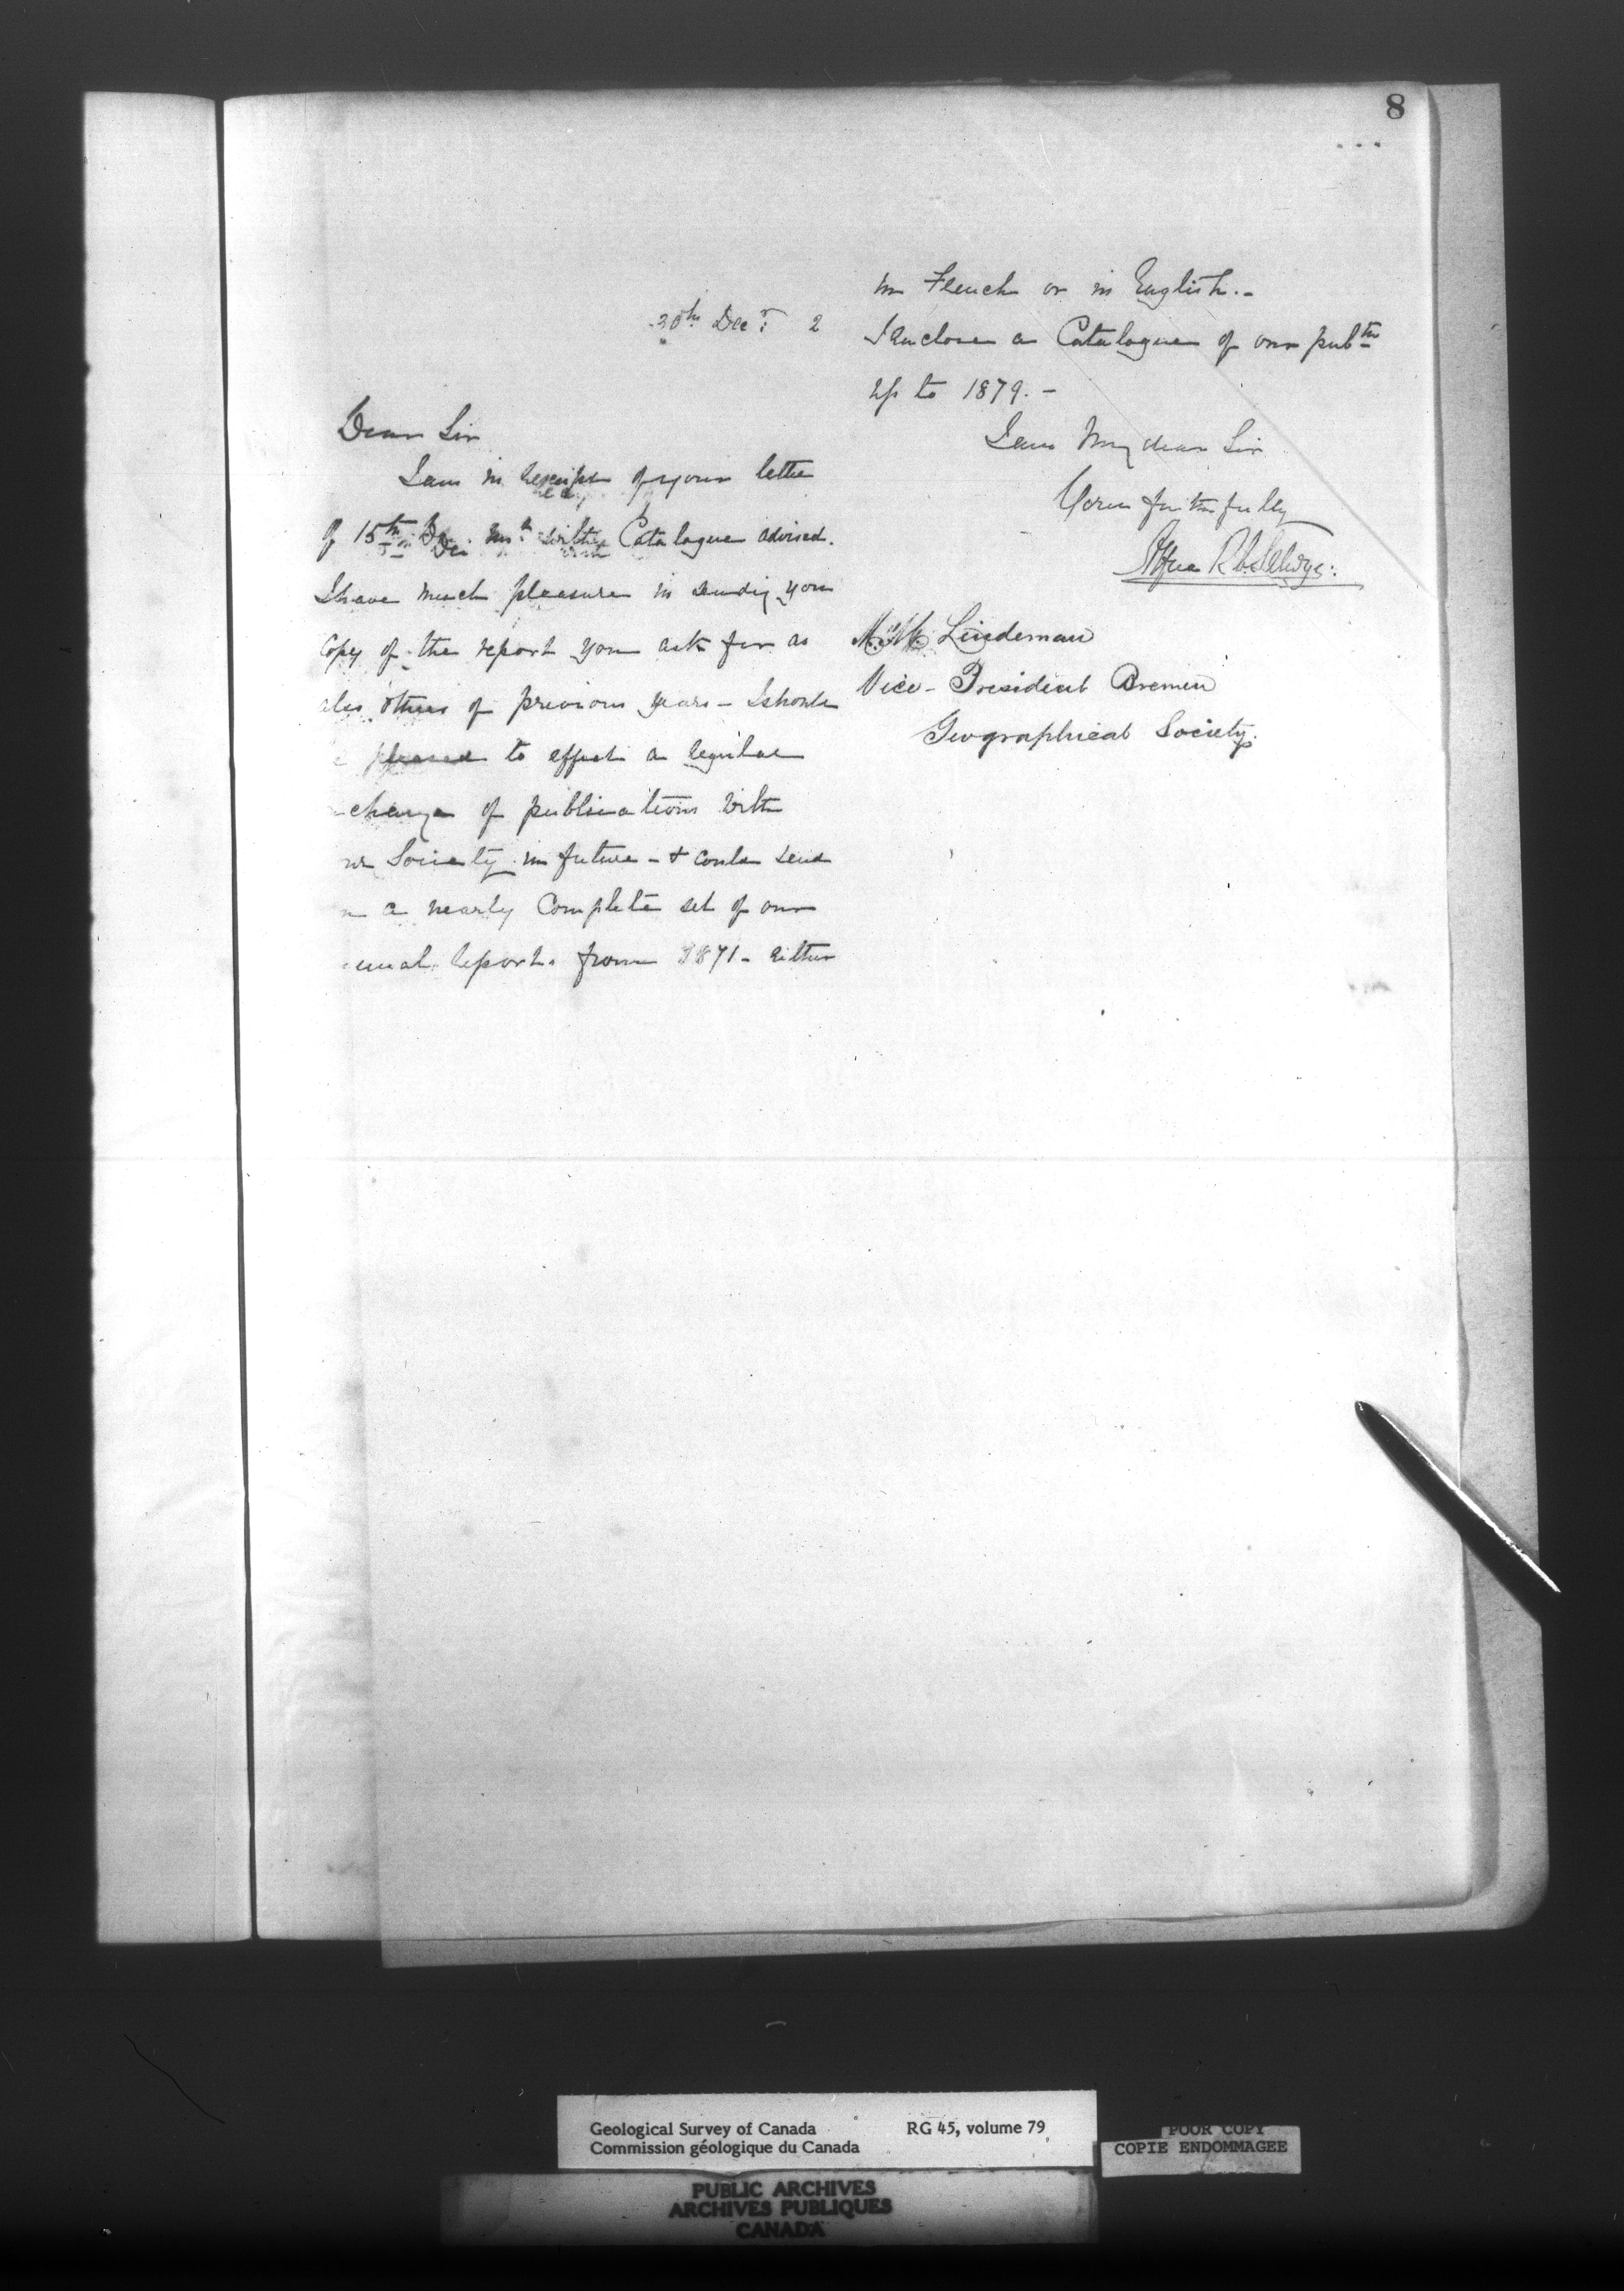 8
30th Decr: 2
Dear Sir
I am in receipt of your letter
of 15th Dec inst with Catalogue advised.
I have much pleasure in sending you
Copy of the report you ask for as
also others of previous years - I should
pleased to effect a regular
change of publications with
Society in future - & could send
a nearly Complete set of our
nual reports from 1871 - either
in French or in English. -
I enclose a Catalogue of our pubtns
up to 1879. -
I am My dear Sir
Yours faithfully
Alfred R C Selwyn:
Lindeman
Vice-President Bremen
Geographical Society.
Geological Survey of Canada RG 45, volume 79
Commission géologique du Canada
POOR COPY
COPIE ENDOMMAGEE
PUBLIC ARCHIVES
ARCHIVES PUBLIQUES
CANADA